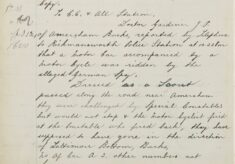 Copy.
To C.C. & All Stations,
Doctor Gardner J.P.
of Amersham Bucks reported by telephone
to Rickmansworth Police Station at
a motor Car accompanied by a
motor Cycle was ridden by the
alleged German Spy.
Dressed as a Scout
passed along the road near Amersham
they were challenged by Special Constables
but would not stop & the motor cyclist fired
at the Constable who fired back, they have
supposed to have gone in the direction
of Latimer Bucks
No. of Car A 2 other numbers not